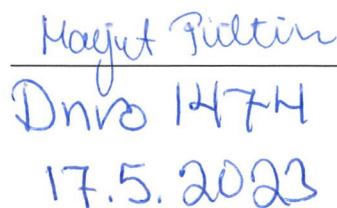 Marjut Piiltin
Dnro 1474
17.5.2023